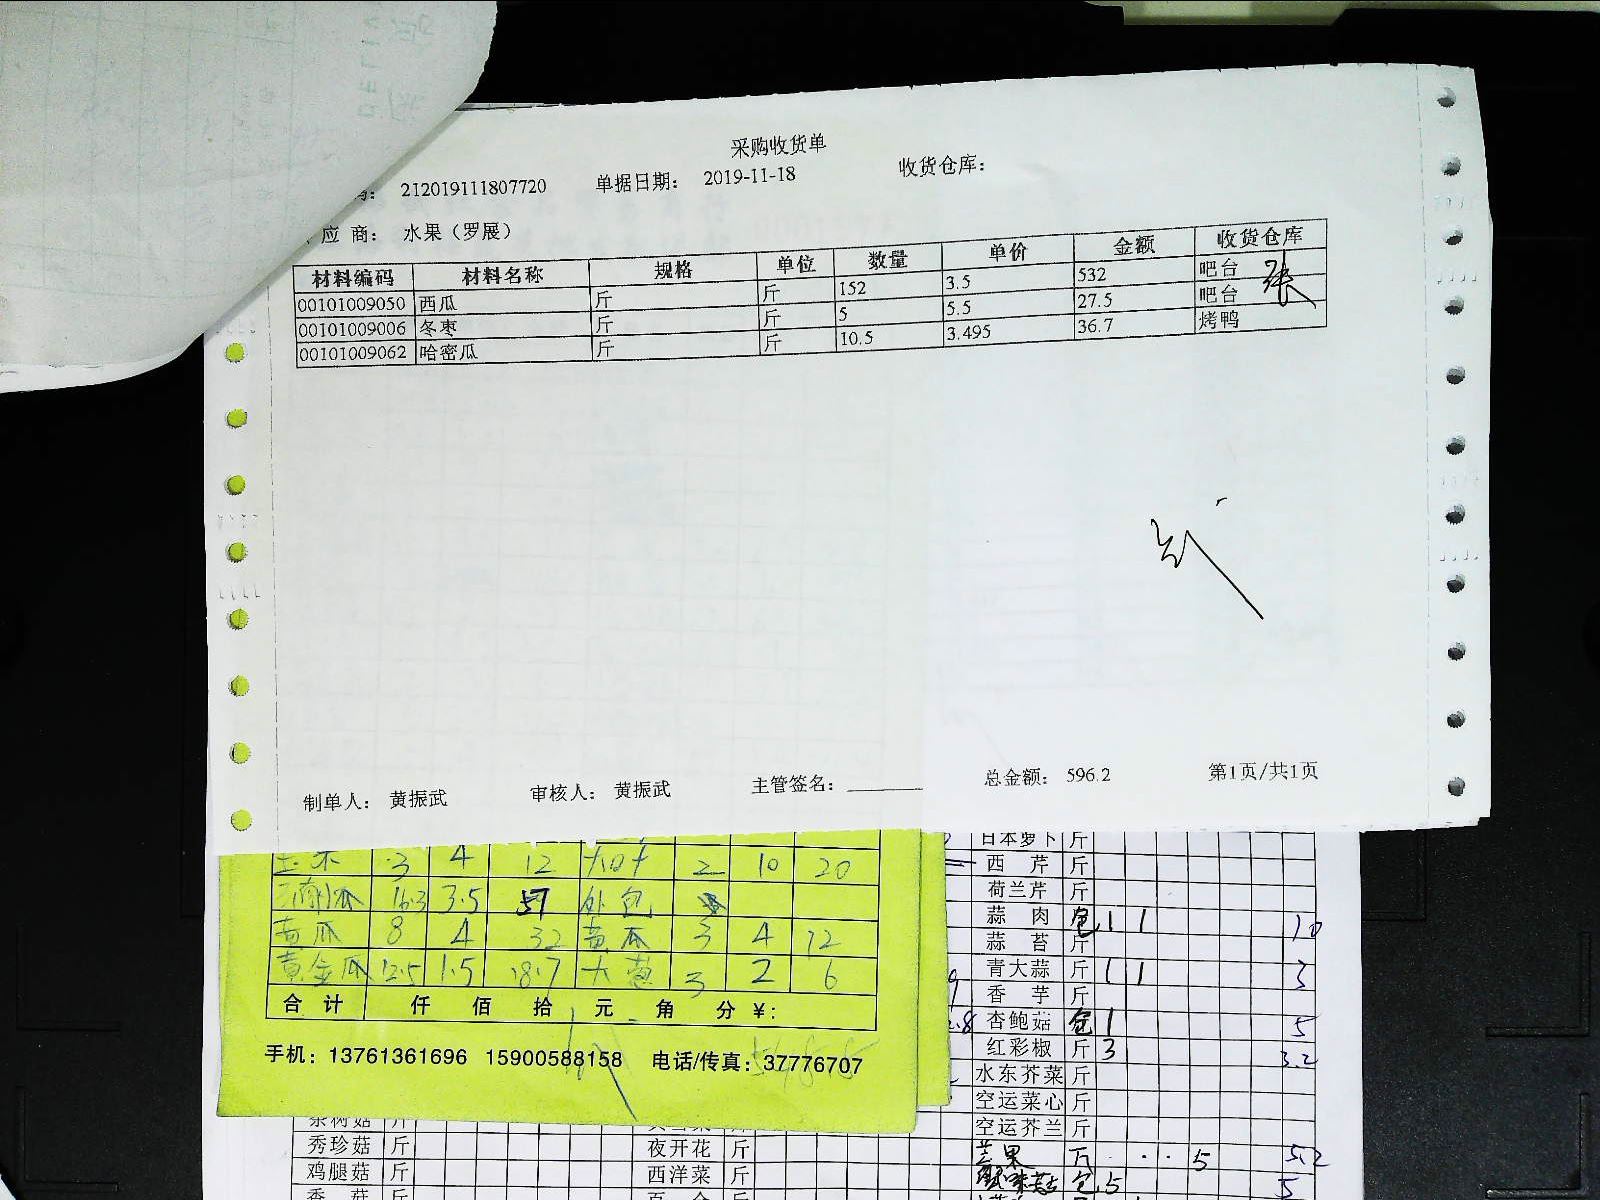 采购收货单
212019111807720 单据日期： 2019-11-18 收货仓库：
应 商： 水果（罗展）
材料编码 材料名称 规格 单位 数量 单价 金额 收货仓库
00101009050 西瓜 斤 斤 152 3.5 532 吧台
00101009006 冬枣 斤 斤 5 5.5 27.5 吧台
00101009062 哈密瓜 斤 斤 10.5 3.495 36.7 烤鸭
制单人： 黄振武 审核人： 黄振武 主管签名： 总金额： 596.2 第1页/共1页
3 4 12 2 10 20
16.3 3.5 57 外包
黄瓜 8 4 32 黄瓜 3 4 12
黄金瓜 12.5 1.5 18.7 大葱 3 2 6
合 计 仟 佰 拾 元 角 分 ¥:
手机：13761361696 15900588158 电话/传真：37776707
日本萝卜 斤
西 芹 斤
荷兰芹 斤
蒜 肉 包 1 1 10
蒜 苔 斤
青大蒜 斤 1 1 3
香 芋 斤
杏鲍菇 包 1 5
红彩椒 斤 3 3.2
水东芥菜 斤
空运菜心 斤
空运芥兰 斤
茶树菇 斤
秀珍菇 斤 夜开花 斤 芒果 斤 5 5.2
鸡腿菇 斤 西洋菜 斤 包 5 5